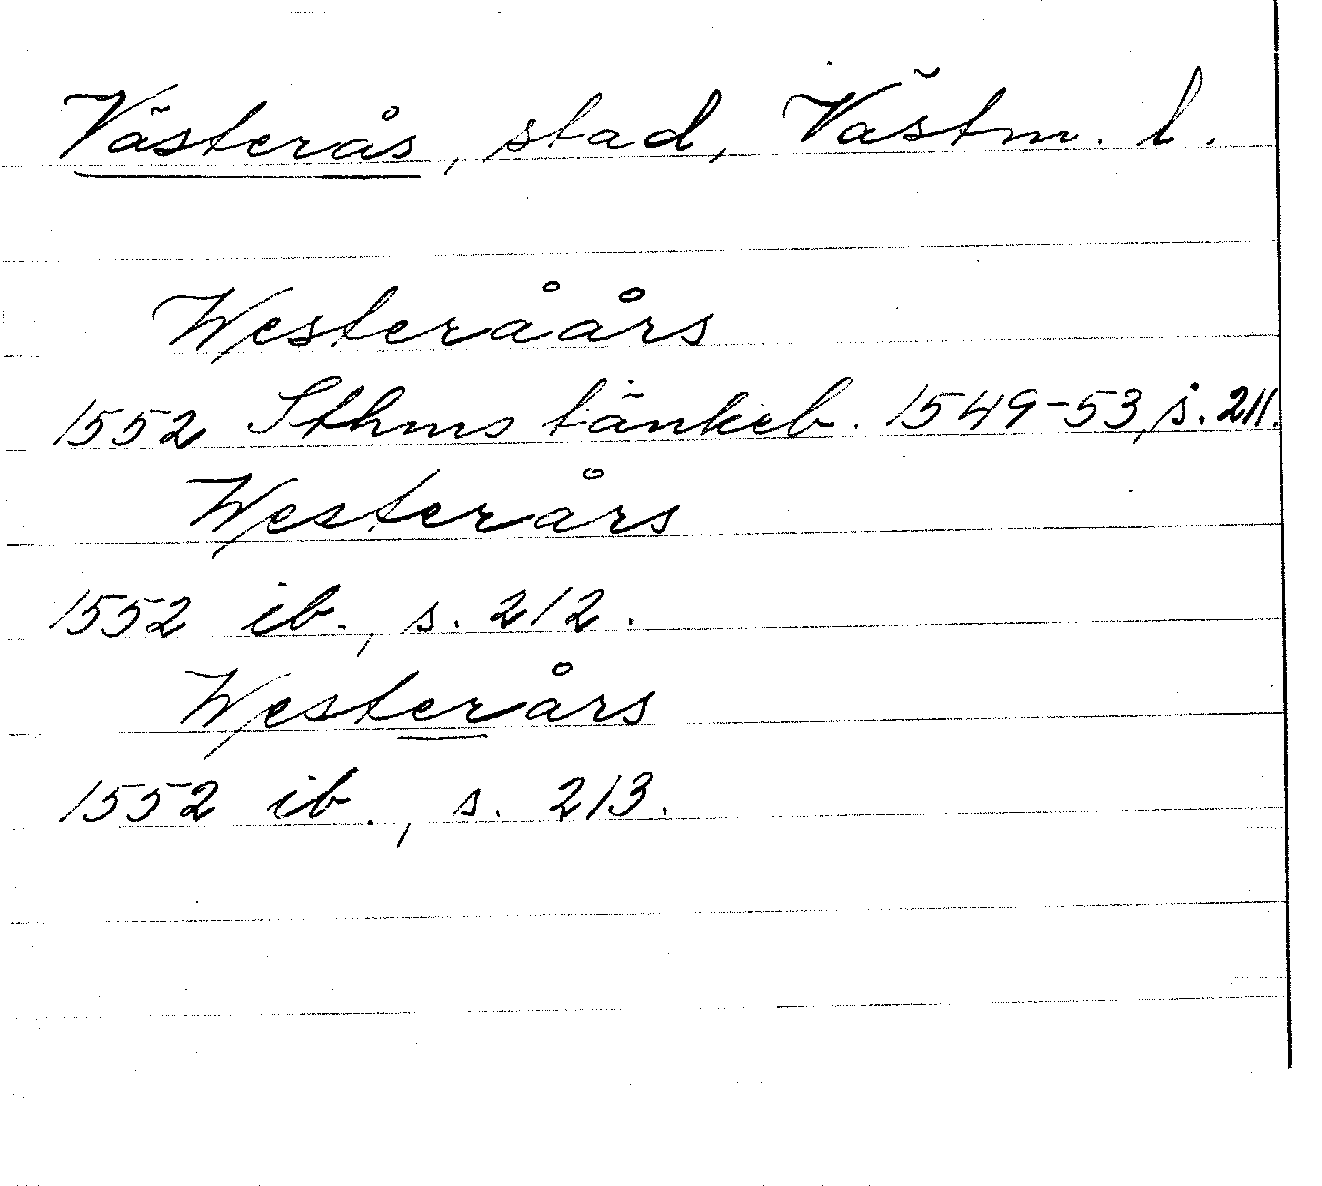 Västerås, stad, Västm. l.
Westeråårs
1552 Sthms tänkeb. 1549-53, s. 211.
Westerårs
1552 ib., s. 212.
Westerårs
1552 ib., s. 213.